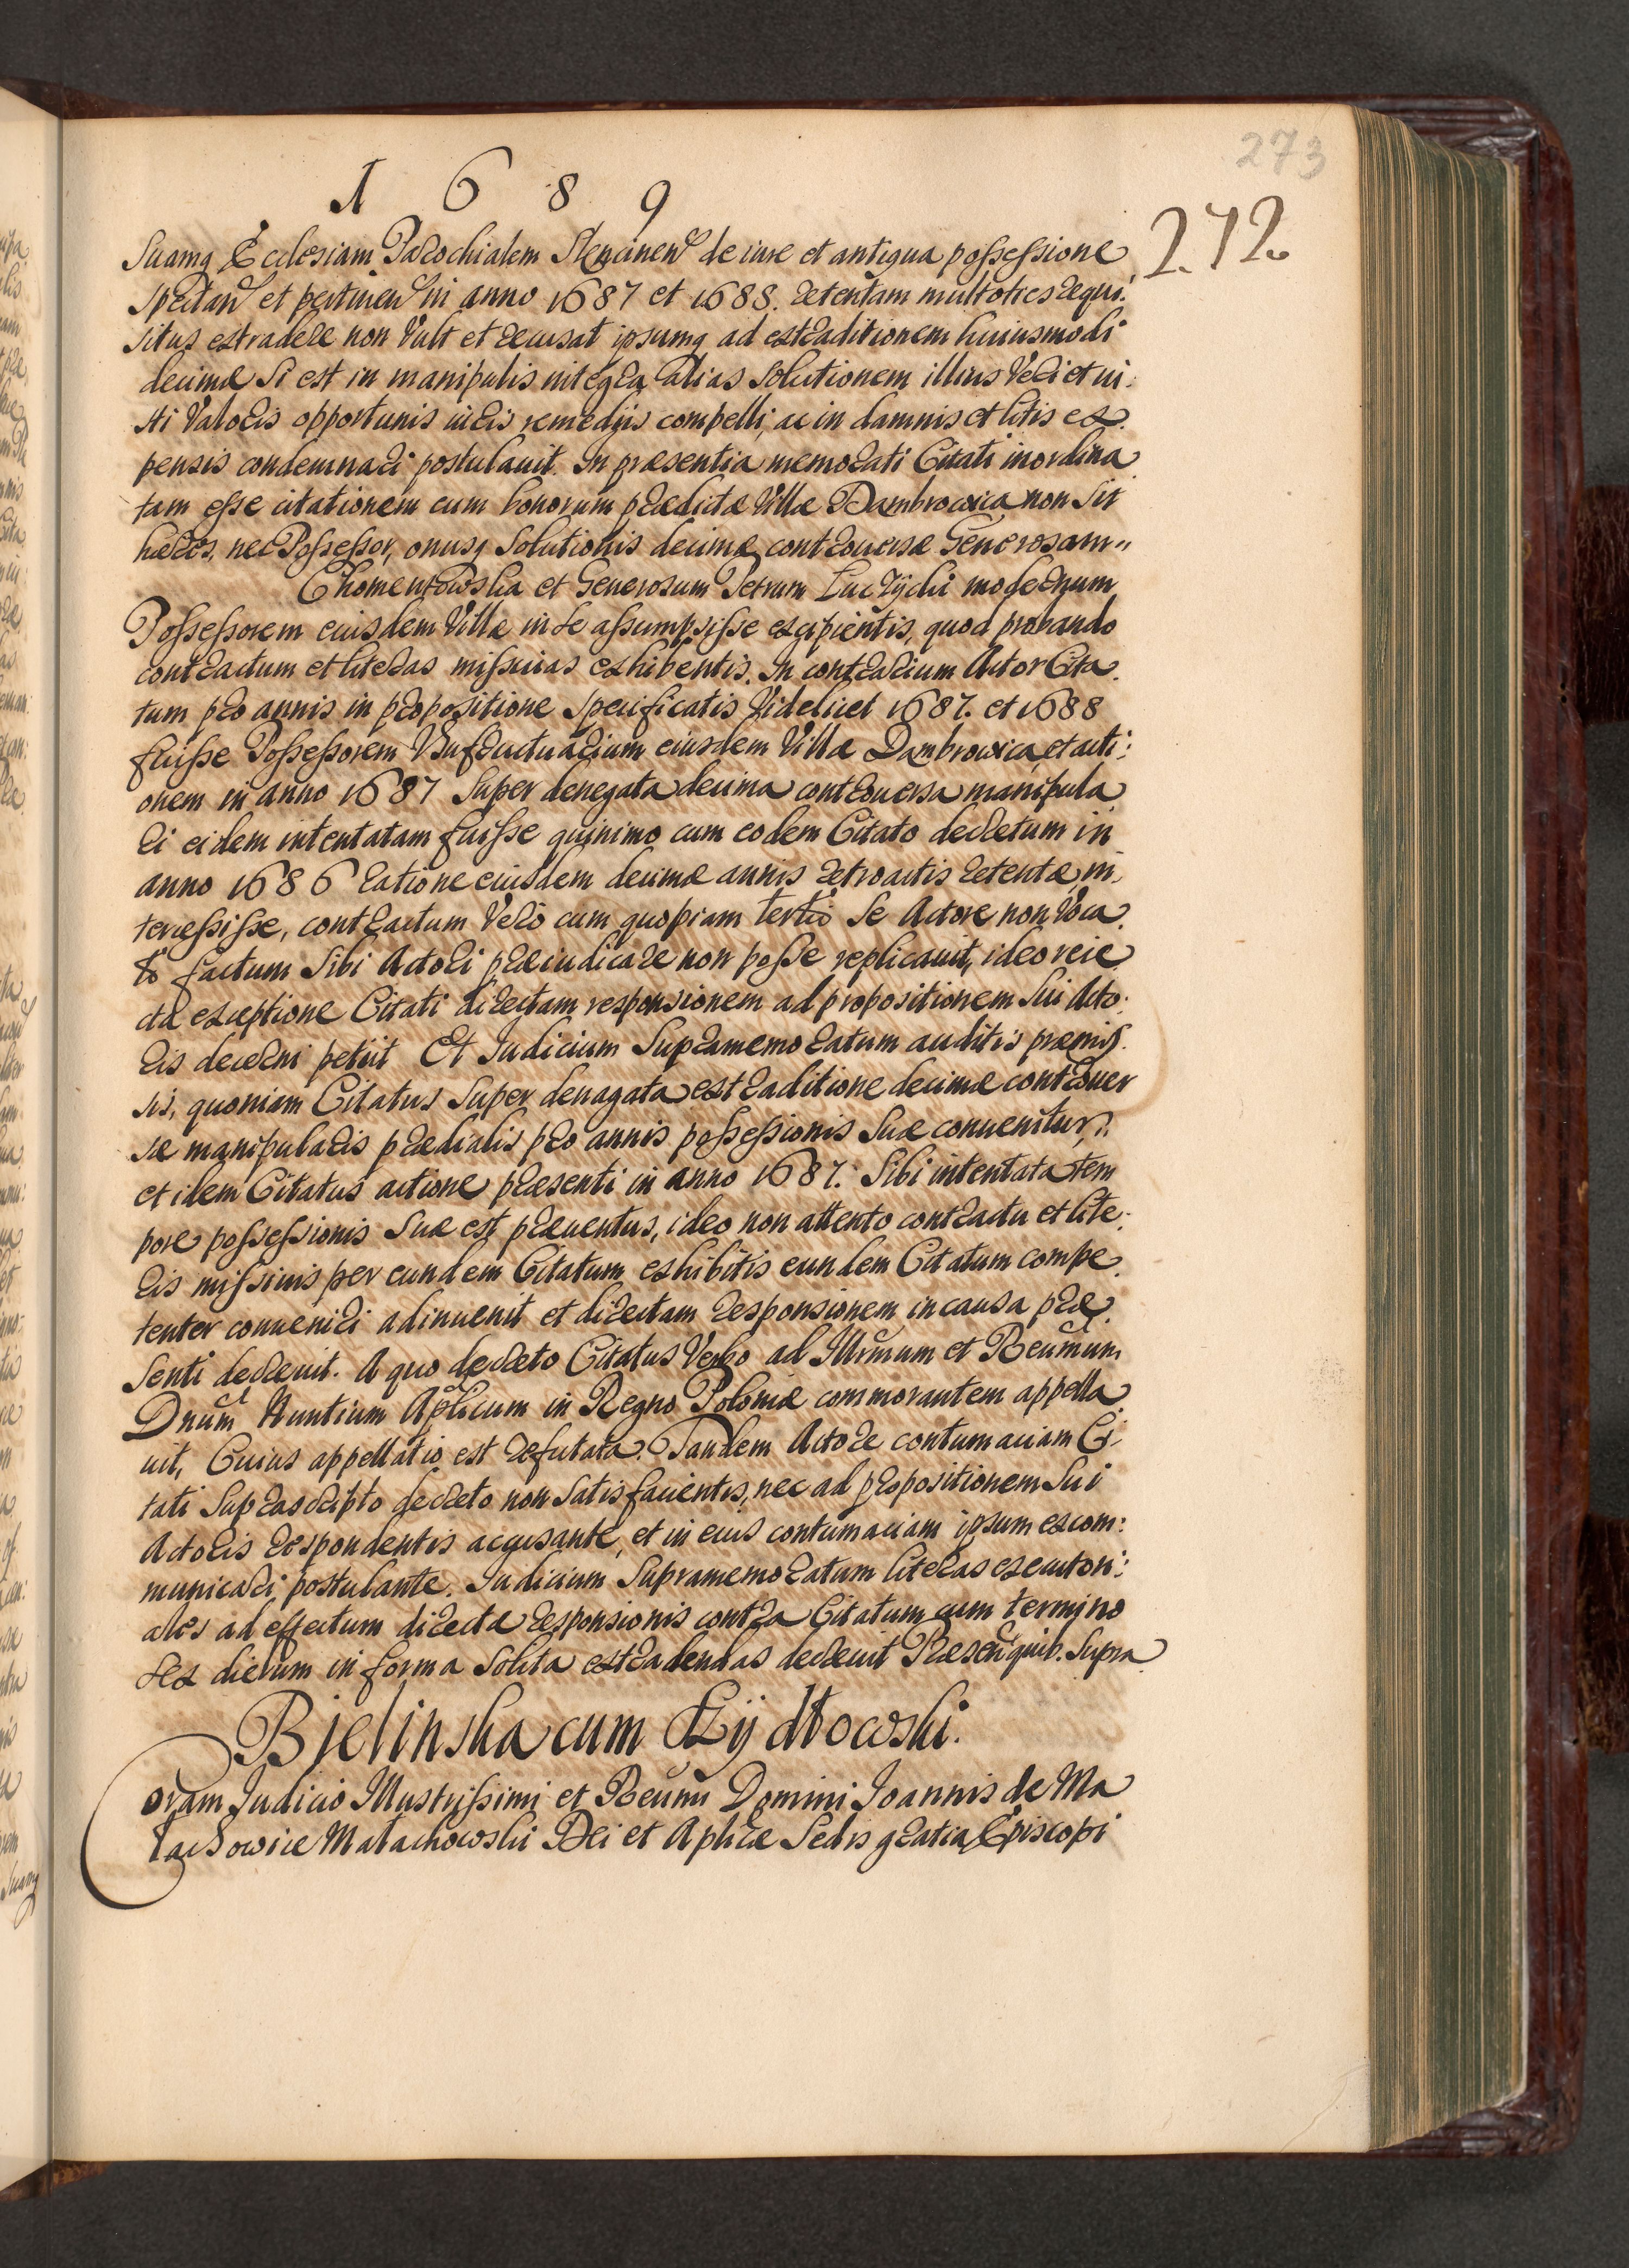 273
1689
272.
Suamq Ecclesiam Parochialem Slencinen de iure et antiqua possessione
spectan et pertinen in anno 1687 et 1688. retentam multoties requi:
situs extradere non Vult et recusat ipsumq ad extraditionem huiusmodi
decimæ Si est in manipulis integra alias Solutionem illius Veri et iu:
sti Valoris opportunis iuris remedijs compelli, ac in damnis et litis ex.
pensis condemnari postulauit. In præsentia memorati Citati inordina
tam esse citationem cum bonorum prædictæ Villæ Dambrowica non Sit
hæres, nec Possessor, onusq Solutionis decimæ controuersæ Generosam
Chomentowska et Generosum Petrum modernum
Possessorem eiusdem Villæ in Se assumpsisse excipientis, quod probando
contractum et literas missiuas exhibentis. In contrarium Actor Cita.
tum pro annis in propositione specificatis Videlicet 1687. et 1688
fuisse Possessorem Vsufructuarium eiusdem Villæ Dambrowica, et acti:
onem in anno 1687 Super denegata decima controuersa manipula
ri eidem intentatam fuisse quinimo cum eodem Citato decretum in
anno 1686 ratione eiusdem decimæ annis retroactis retentæ in
tercessisse, contractum Vero cum quopiam tertio Se Actore non Voca
to factum Sibi Actori præiudicare non posse replicauit, ideo reie
cta exceptione Citati directam responsionem ad propositionem Sui Acto:
ris decerni petiit Et Iudicium Supramemoratum auditis præmis
sis, quoniam Citatus Super denagata extraditione decimæ controuer
sæ manipularis prædialis pro annis possessionis Suæ conuenitur,
et idem Citatus actione præsenti in anno 1687. Sibi intentata tem
pore possessionis Suæ est præuentus, ideo non attento contractu et lite:
ris missiuis per eundem Citatum exhibitis eundem Citatum compe
tenter conueniri adinuenit et directam responsionem in causa præ
senti decreuit. A quo decreto Citatus Verbo ad Illrmum et Reumum
Dnum Nuntium Aplicum in Regno Poloniæ commorantem appella
uit, Cuius appellatio est refutata. Tandem Actore contumaciam Ci
tati Suprascripto decreto non Satisfacientis, nec ad propositionem Sui
Actoris respondentis accusante, et in eius contumaciam ipsum excom:
municari postulante. Iudicium Supramemoratum literas executori:
ales ad effectum directæ responsionis contra Citatum cum termino
sex dierum in forma Solita extradendas decreuit Præsen quib. Supra
Bielinska cum Rzÿdtowski.
Coram Judicio Illustrissimi et Reumi Domini Joannis de Ma
lachowice Małachowski Dei et Aplicæ Sedis gratia Episcopi